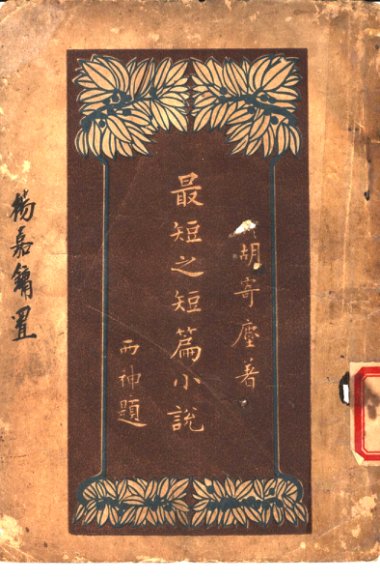 胡寄塵著
最短之短篇小說
西神題
楊嘉鏞置